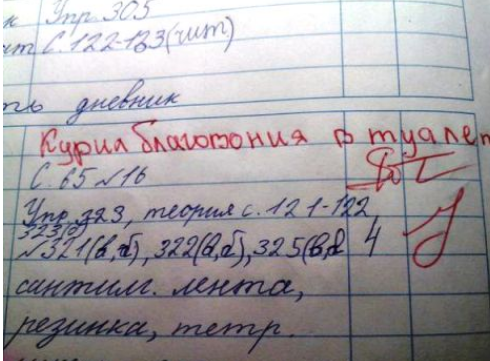 Упр 305
С. 122-123 (чит)
дневник
Курила благовония в туалет
С. 65 №16
Упр 323, теория с. 121-122
323(в)
№321(в,г), 322(в,г), 325(в,г 4
сантим. лента,
резинка, тетр.